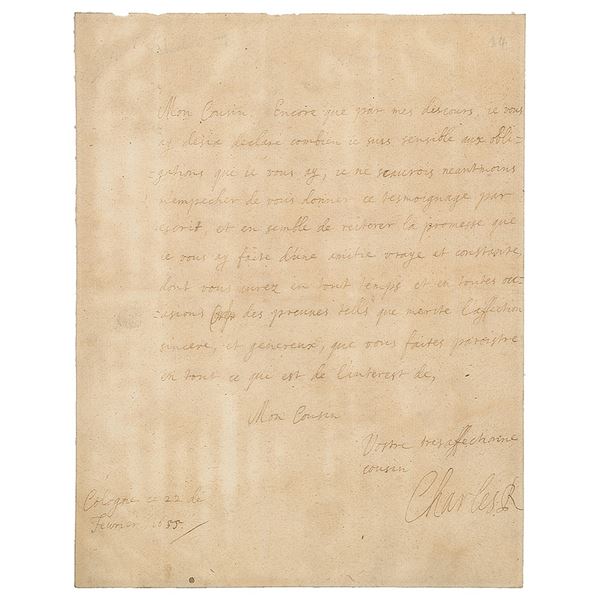 24
Mon Cousin, Encore que par mes descours, ie vous
ay desia declaré combien ie suis sensible aux obli=
=gations que ie vous ay, ie ne scaurois neantmoins
m'empecher de vous donner ce tesmoignage par
escrit, et en semble de reiterer la promesse que
ie vous ay faite d'une amitie vraye et constante,
dont vous aurez en tout temps et en toutes occ=
=asions des preuues tells que merite l'affection
sincere, et genereux, que vous faites paroistre
en tout ce qui est de l'interest de,
Mon Cousin
Vostre tres affectionne
cousin
Charles R
Cologne ce 22 de
Feurier 1655